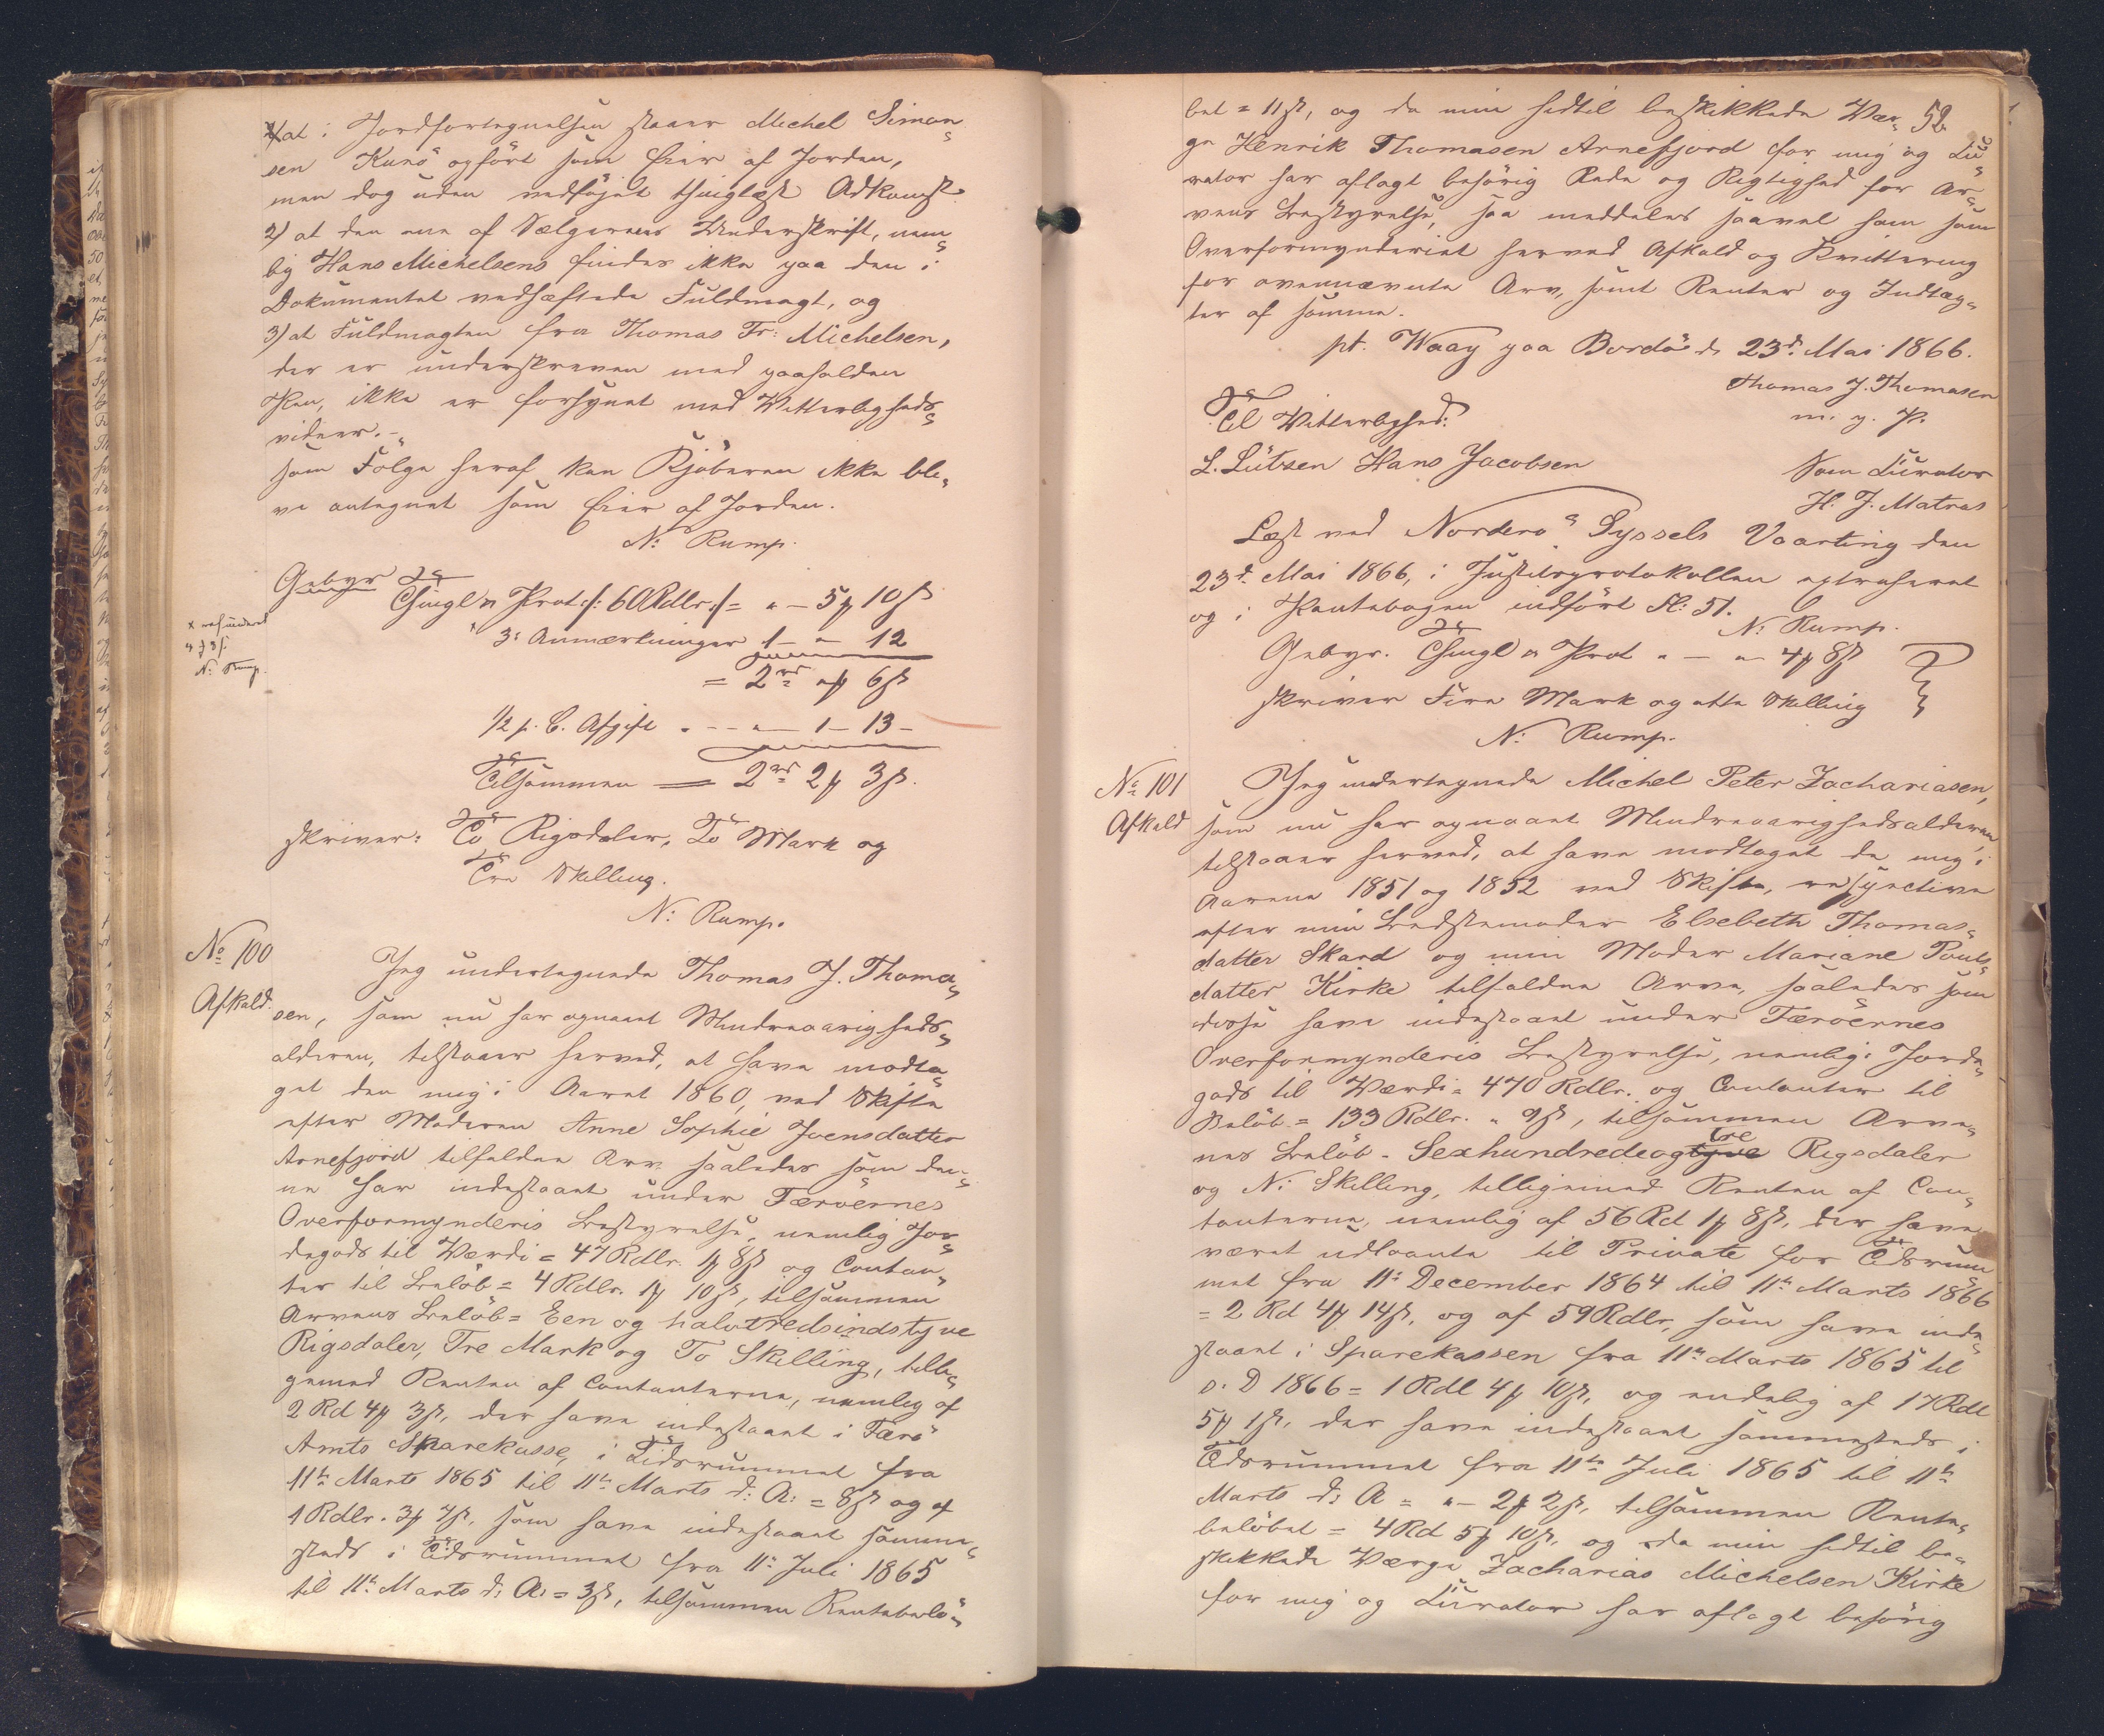 1) at i Jordfortegnelsen staaer Michel Simon-
sen Kunö opfört som Eier af Jorden,
men dog uden vedföjet thinglæst Adkomst
2) at den ene af Sælgernes Underskrift, nem-
lig Hans Michelsens findes ikke paa den i
Dokumentet vedhæftede Fuldmagt, og
3) at Fuldmagten fra Thomas Fr: Michelsen,
der er underskreven med paaholden
Pen, ikke er forsynet med Vitterligheds-
vidner.-
som Fölge heraf kan Kjöberen ikke bli-
ve antegnet som Eier af Jorden.
N: Rump.
Gebyr
Thingl n Prot. /: 60 Rdlr :/ = " - 5 ₰ 10 ß
" 3: Anmærkninger 1 - " 12
= 2 rd " ₰ 6 ß
x refunderet
4 ₰ 8 ß.
N: Rump.
1/2 p. C. Afgift . - - " - 1 - 13 -
Tilsammen = 2 rd 2 ₰ 3 ß.
skriver: To Rigsdaler, To Mark og
Tre Skilling.
N: Rump.
No 100
Afkald.
Jeg undertegnede Thomas J. Thoma-
sen, som nu har opnaaet Mindreaarigheds-
alderen, tilstaaer herved, at have modta-
get den mig i Aaret 1860, ved Skifte
efter Moderen Anne Sophie Joensdatter
Arnefjord tilfaldne Arv saaledes som den-
ne har indestaaet under Færöernes
Overformynderis Bestyrelse, nemlig Jor-
degods til Værdi = 47 Rdlr. 1 ₰ 8 ß og Contan-
ter til Belöb = 4 Rdlr. 1 ₰ 10 ß, tilsammen
Arvens Belöb = Een og halvtredsindstyve
Rigsdaler, Tre Mark og To Skilling, tilli-
gemed Renten af Contanterne, nemlig af
2 Rd 4 ₰ 3 ß, der have indestaaet i Færö
Amts Sparekasse, i Tidsrummet fra
11te Marts 1865 til 11te Marts d: A: = 8 ß og af
1 Rdlr. 3 ₰ 7 ß, som have indestaaet samme-
steds i Tidsrummet fra 11te Juli 1865
til 11te Marts d: A: = 3 ß, tilsammen Rentebelö-
52
bet = 11 ß, og da min hidtil beskikkede Vær-
ge Henrik Thomasen Arnefjord for mig og Cu-
rator har aflagt behörig Rede og Rigtighed for Ar-
vens Bestyrelse, saa meddeles saavel ham som
Overformynderiet herved Afkald og Kvittering
for ovennævnte Arv, samt Renter og Indtæg-
ter af samme.
pt. Waag paa Bordö d. 23d. Mai 1866.
Thomas J. Thomasen
m. p. P.
Til Vitterlighed:
L. Lützen Hans Jacobsen
Som Curator
H. J. Matras
Læst ved Norderö Syssels Vaarting den
23d. Mai 1866, i Justitsprotokollen extraheret
og i Pantebogen indfört Fl: 51.
N: Rump.
Gebyr. Thingl n Prot " - " 4 ₰ 8 ß
skriver Fire Mark og otte Skilling
N: Rump.
No 101
Afkald
Jeg undertegnede Michel Peter Zachariasen,
som nu har opnaaet Mindreaarighedsalderen
tilstaaer herved, at have modtaget de mig i
Aarene 1851 og 1852 ved Skifte, respective
efter min Bedstemoder Elsebeth Thomas-
datter Skard og min Moder Mariane Pouls-
datter Kirke tilfaldne Arve, saaledes som
disse have indestaaet under Færöernes
Overformynderis Bestyrelse, nemlig: Jorde-
gods til Værdi = 470 Rdlr. og Contanter til
Belöb = 133 Rdlr. " 9 ß, tilsammen Arve-
nes Belöb - Sexhundredeogtyve tre Rigsdaler
og Ni Skilling, tilligemed Renten af Con-
tanterne, nemlig af 56 Rd 1 ₰ 8 ß, der have
været udlaante til Private for Tidsrum-
met fra 11te December 1864 til 11te Marts 1866
= 2 Rd 4 ₰ 14 ß, og af 59 Rdlr, som have inde-
staaet i Sparekassen fra 11te Marts 1865 til
s. D 1866 = 1 Rdl 4 ₰ 10 ß, og endelig af 17 Rdl
5 ₰ 1 ß, der have indestaaet sammesteds i
Tidsrummet fra 11te Juli 1865 til 11te
Marts d: A = " - 2 ₰ 2 ß, tilsammen Rente-
belöbet = 4 Rd 5 ₰ 10 ß, og da min hidtil be-
skikkede Værge Zacharias Michelsen Kirke
for mig og Curator har aflagt behörig